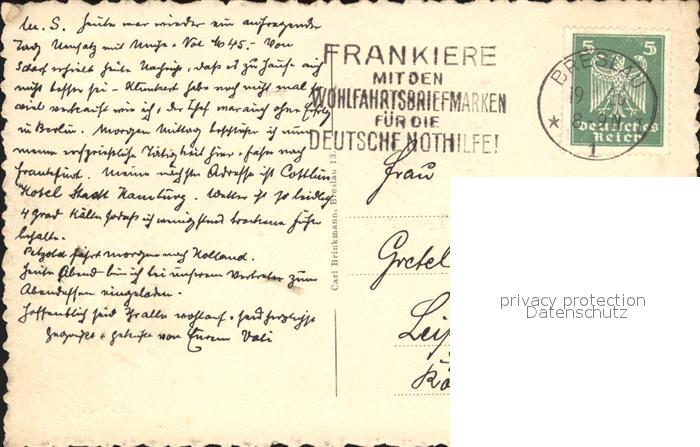 M. S. Heute war wieder ein anstrengender
Tag. Umsatz mit 1645.- Von
Scharf erhielt heute Nachricht, dass es zu Hause auch
nicht besser sei - habe noch nicht mal so
viel verkauft wie ich, der Chef war auch ohne Erfolg
in Berlin. Morgen Mittag beschließe ich nun
meine Tätigkeit hier + fahre nach
Frankfurt. Meine nächste Adresse ist
Hotel Stadt Hamburg. Wetter ist so leidlich
4 Grad Kälte sodass ich wenigstens trockene Füße
behalte.
Petzold fährt morgen nach Holland.
Heute Abend bin ich bei unserem Vertreter zum
Abendessen eingeladen.
Hoffentlich seid Ihr alle wohlauf + seid herzlichst
gegrüßt + geküsst von Eurem Vati
FRANKIERE
MIT DEN
WOHLFAHRTSBRIEFMARKEN
FÜR DIE
DEUTSCHE NOTHILFE!
5 5
Deutsches
Reich
BRESLAU
8-9N
* 1
Carl Brinkmann, Breslau 13
Frau
Gretel
privacy protection
Datenschutz